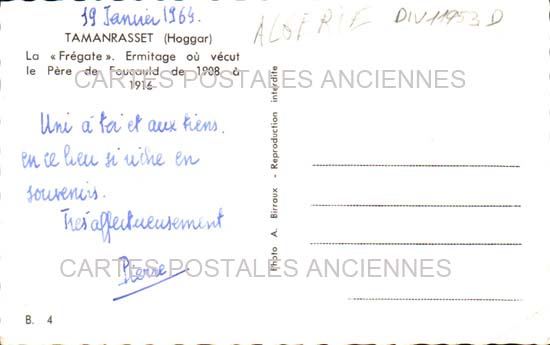 19 Janvier 1964
ALGERIE DIV11953D
TAMANRASSET (Hoggar)
La « Frégate ». Ermitage où vécut
le Père de Foucauld de 1908 à
1916
CARTES POSTALES ANCIENNES
Uni à toi et aux tiens.
en ce lieu si riche en
souvenirs.
Très affectueusement
Pierre
CARTES POSTALES ANCIENNES
Photo A. Birraux - Reproduction interdite
B. 4